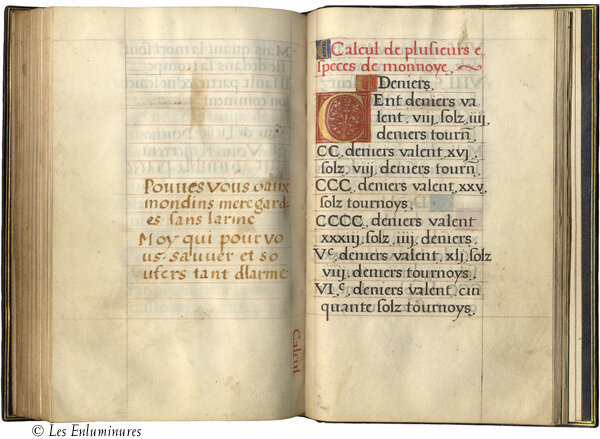 Pouves vous o aux
mondins me regard
es sans larme
Moy qui pour vo
us sauver et so
ufers tant dlarme
Calcul
Calcul de plusieurs e
speces de monnoye.
Deniers.
Cent deniers va
lent, viij, solz, iiij,
deniers tourñ
CC, deniers valent, xvj,
solz, viij, deniers tourñ
CCC, deniers valent, xxv,
solz tournoys,
CCCC, deniers valent
xxxiij, solz, iiij, deniers,
Vᶜ, deniers valent, xlj, solz
viij, deniers tournoys,
VIᶜ, deniers valent, cin
quante solz tournoys,
© Les Enluminures